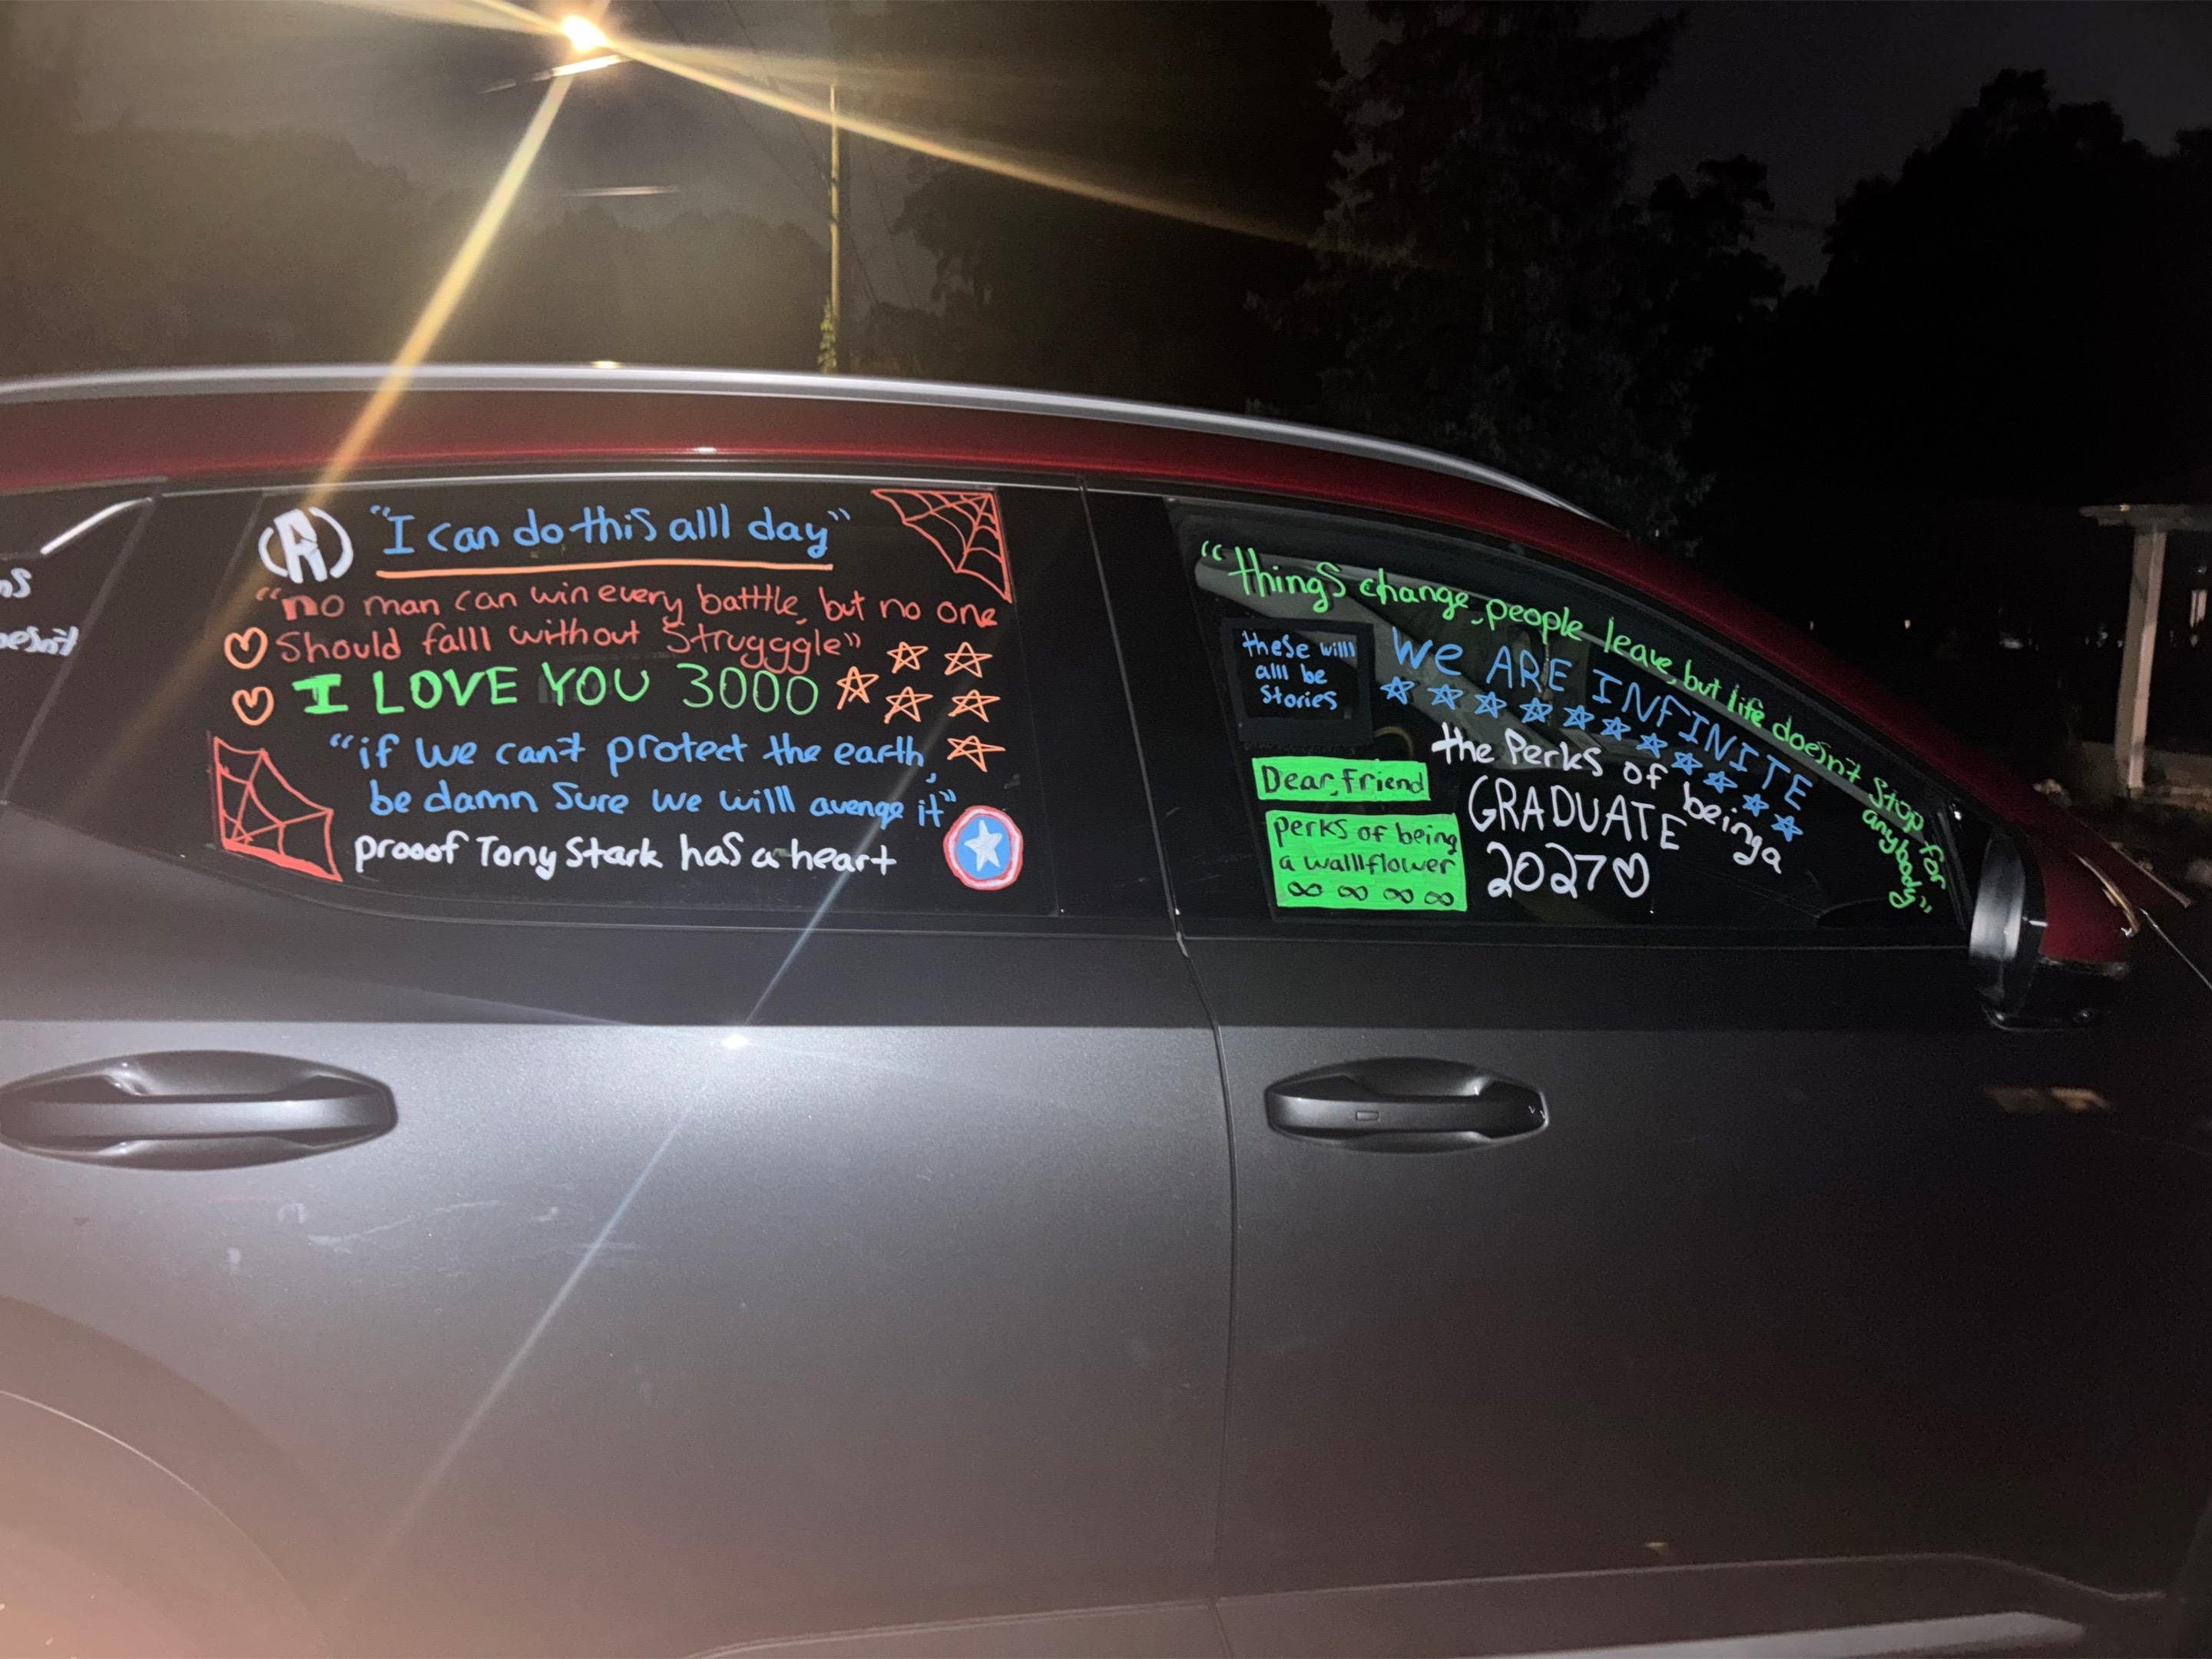 ns
oesn't
"I can do this alll day"
"no man can win every batttle, but no one
Should falll without Strugggle"
I LOVE YOU 3000
"if we can't protect the earth,
be damn Sure we willl avenge it"
prooof Tony Stark has a heart
"things change, people leave, but life doesn't Stop for
anybody"
these willl
alll be
Stories
We ARE INFINITE
the Perks of being a
GRADUATE
2027
Dear, friend
perks of being
a walllflower
∞ ∞ ∞ ∞